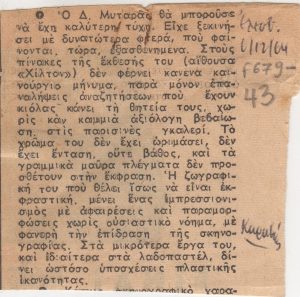 ● Ὁ Δ. Μυταρᾶς θὰ μποροῦσε
νὰ ἔχη καλύτερη τύχη. Εἶχε ξεκινή-
σει μὲ δυνατότερα φτερά, ποὺ φαί-
νονται, τώρα, ἐξασθενημένα. Στοὺς
πίνακες τῆς ἔκθεσής του (αἴθουσα
«Χίλτον») δὲν φέρνει κανένα και-
νούργιο μήνυμα, παρὰ μόνον ἐπα-
ναλήψεις ἀναζητήσεων ποὺ ἔχουν
κιόλας κάνει τὴ θητεία τους, χω-
ρὶς κἂν καμμιὰ ἀξιόλογη βεβαίω-
ση, στὶς παρισινὲς γκαλερί. Τὸ
χρῶμα του δὲν ἔχει ὡριμάσει, δὲν
ἔχει ἔνταση, οὔτε βάθος, καὶ τὰ
γραμμικὰ μαῦρα πλέγματα δὲν προ-
σθέτουν στὴν ἔκφραση. Ἡ ζωγραφι-
κή του ποὺ θέλει ἴσως νὰ εἶναι ἐκ-
φραστική, μένει ἕνας ἐμπρεσσιονι-
σμὸς μὲ ἀφαιρέσεις καὶ παραμορ-
φώσεις χωρὶς οὐσιαστικὸ νόημα, μὲ
φανερὴ τὴν ἐπίδραση τῆς σκηνο-
γραφίας. Στὰ μικρότερα ἔργα του,
καὶ ἰδιαίτερα στὰ λαδοπαστέλ, δί-
νει ὡστόσο ὑποσχέσεις πλαστικῆς
ἱκανότητας.
6/12/64
F679-
43